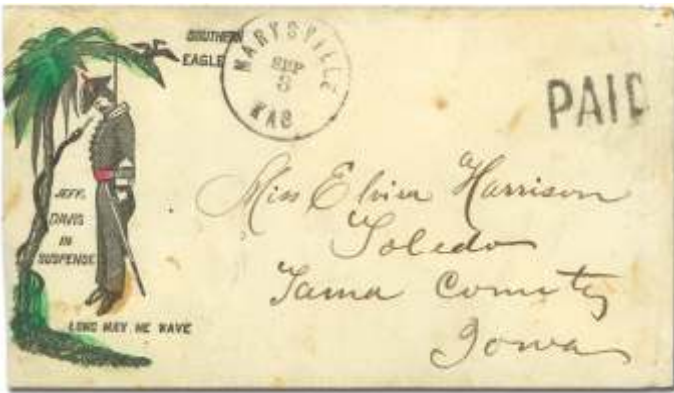 SOUTHERN
EAGLE
MARYSVILLE
SEP
3
KAS
PAID
JEFF.
DAVIS
IN
SUSPENSE
LONG MAY HE WAVE
Miss Elvira Harrison
Toledo
Tama County
Iowa